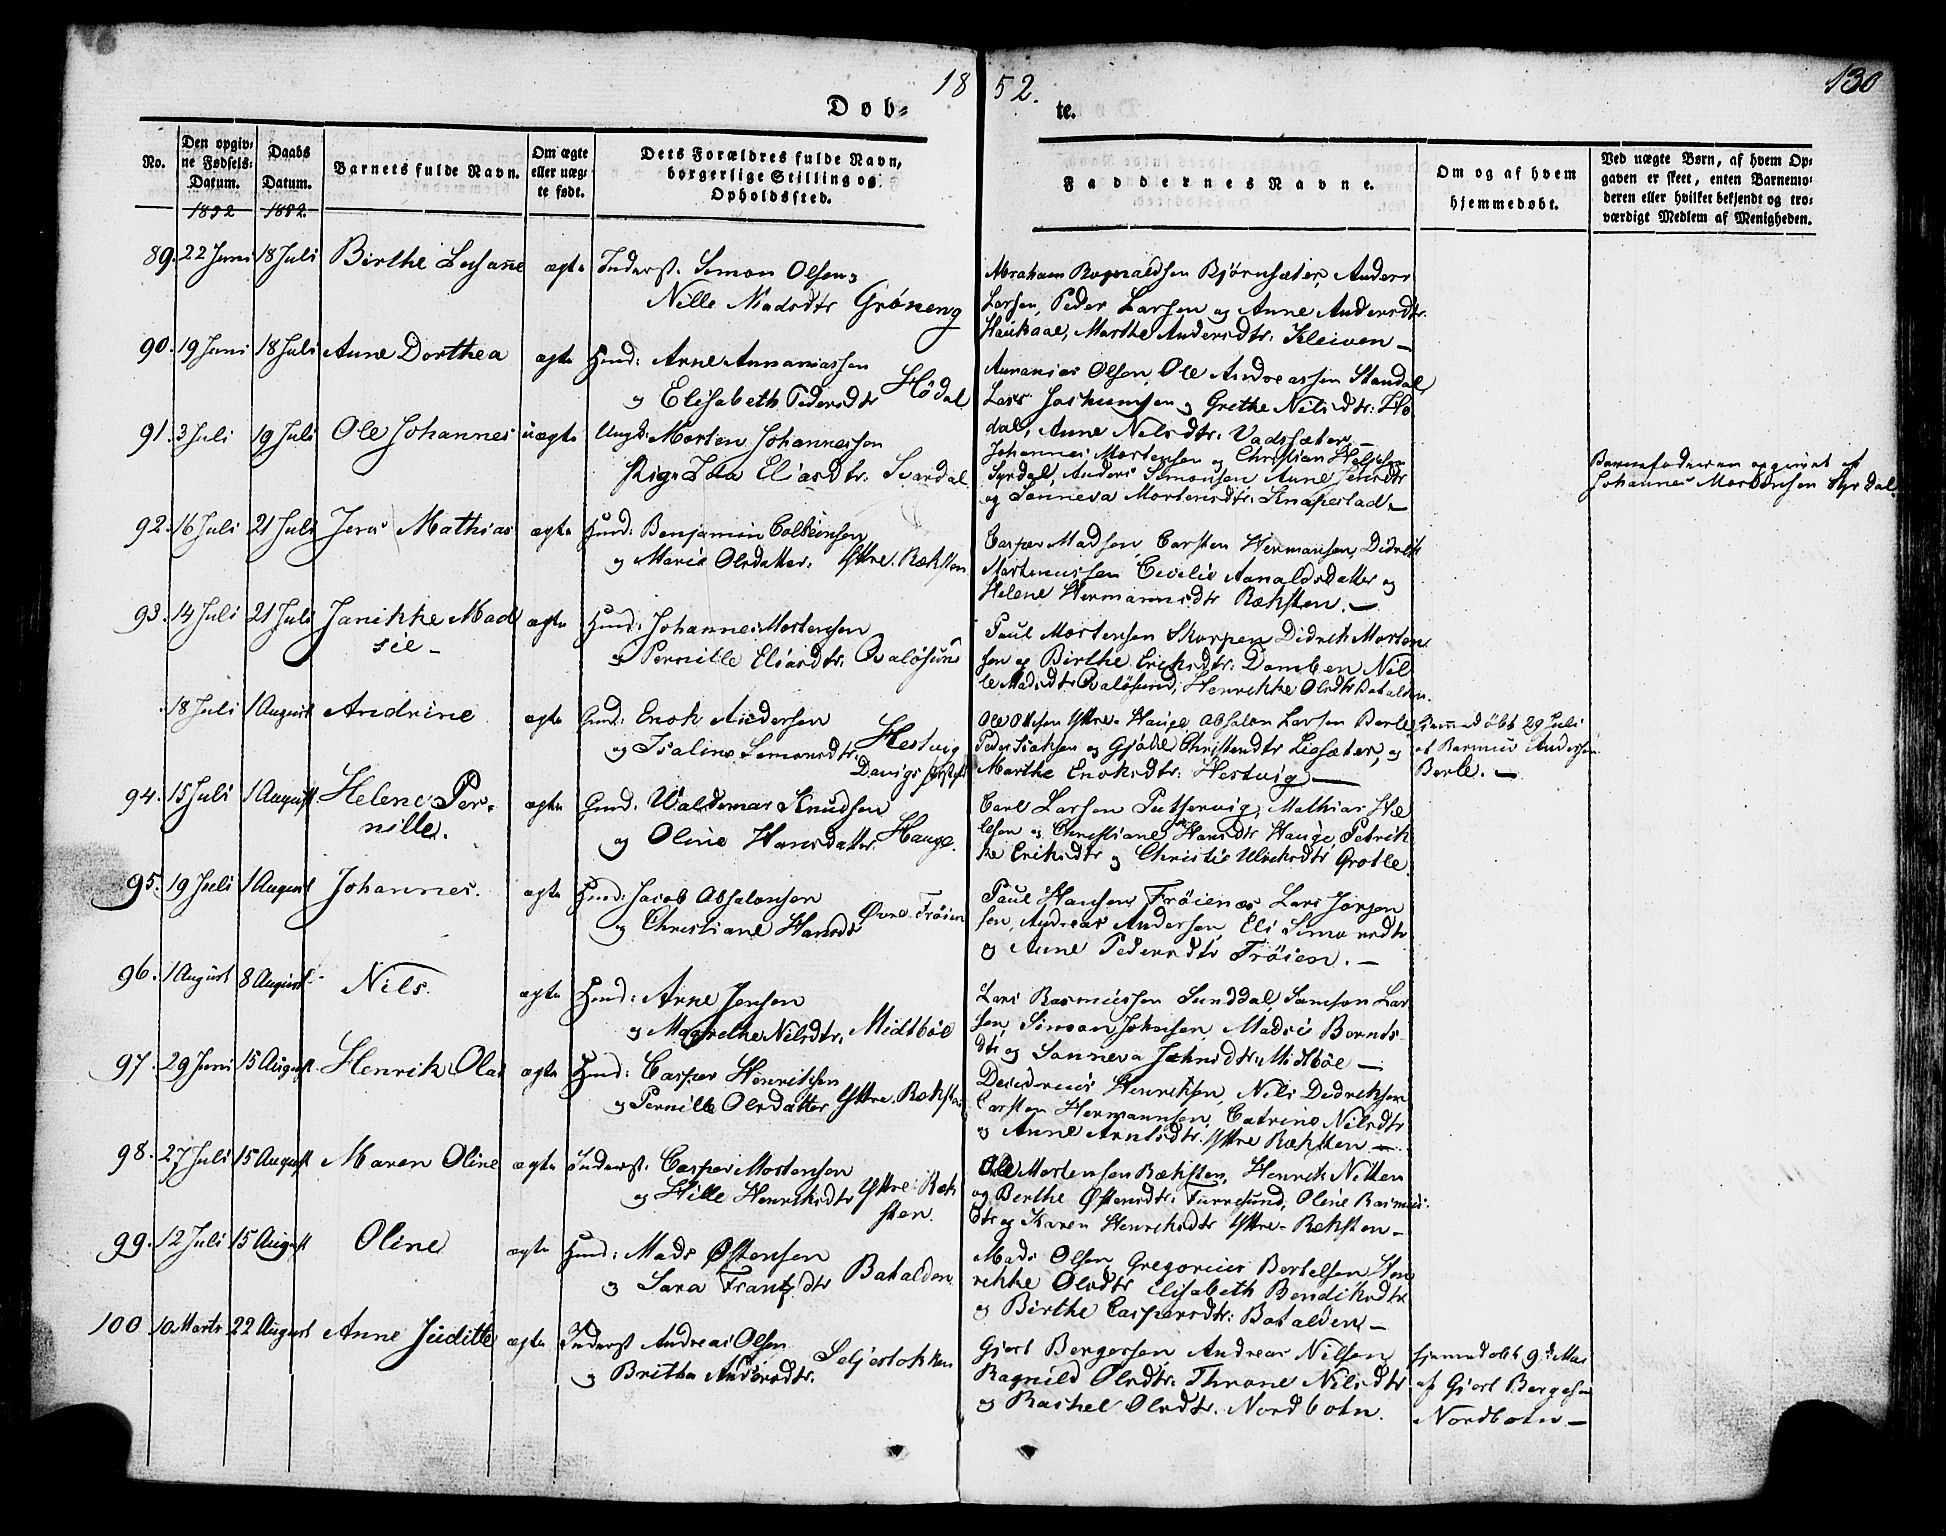 18 52.
130
Døb- te.
No.
Den opgiv-
ne Fødsels-
Datum.
1852
Daabs
Datum.
1852
Barnets fulde Navn.
Om ægte
eller uæg-
te født.
Dets Forældres fulde Navn,
borgerlige Stilling og
Opholdssted.
Faddernes Navne.
Om og af hvem
hjemmedøbt.
Ved uægte Børn, af hvem Op-
gaven er skeet, enten Barnemo-
deren eller hvilket bekjendt og tro-
værdigt Medlem af Menigheden.
89. 22 Juni 18 Juli Birthe ægte Inderst. Simon Olsen
Nille Madsdtr Grøneng
Abraham Rognaldsen Bjørnsæter, Anders
Larsen, Peder Larsen og Anne Andersdtr.
Haukaae, Marthe Andersdtr: Kleiven —
90. 19 Juni 18 Juli Anne Dorthea ægte Huusmd: Arne Annaniassen
og Elisabeth Pedersdtr Hødal
Annanias Olsen, Ole Andreassen Standal,
Lars Joakumsen og Grethe Nilsdtr: Hø
dal, Anne Nilsdtr: Vadsæter —
91. 3 Juli 19 Juli Ole Johannes uægte Ungk: Morten Johannessen
Pige Ida Eliasdtr: Svardal
Johannes Mortensen og Christian
Syrdal, Anders Simonsen Anne Jensdtr
og Sønneva Mortensdtr: Knapstad —
Barnefaderen opgivet af
Johannes Mortensen Syrdal.
92. 16 Juli 21 Juli Jens Mathias ægte Huusmd: Benjamin
og Marie Olsdatter: Yttre Ræksten
Casper Madsen, Carsten Hermansen, Didrik
Martinussen Cecilie Arnoldsdatter og
Helene Hermannsdtr Ræksten. —
93. 14 Juli 21 Juli Janikke Mad
sie — ægte Huusmd: Johannes Mortensen
og Pernille Eliasdtr: Qvaløsund
Paul Mortensen Skorpen, Didrik Morten
sen og Birthe Eriksdtr: Domben Nil
le Madsdtr Qvaløsund, Henrikke Olsdtr Batalden.
18 Juli 1 August Andrine ægte Gmd: Enok Andersen
og Isaline Simonsdtr Hestvig
Davigs
Ole Yttre Hauge, Absalon Larsen Berle,
Peder Isaksen og Gjøde Christensdtr Lesæter, og
Marthe Enoksdtr: Hestvig —
Hjemmedøbt 29 Juli
af Rasmus Andersen
Berle. —
94. 15 Juli 1 August Helene Per-
nille. ægte Gmd. Waldemar Knudsen
og Oline Hansdatter Hauge.
Carl Larsen Mathias He
lesen og Christiane Hansdtr Hauge, Petrik
ke Eriksdtr og Christie Ulriksdtr Grotle.
95. 19 Juli 1 August Johannes. ægte Huusmd: Jacob Absalonsen
og Christiane Hansdtr Øvre Frøien
Paul Hansen Frøienæs Lars Jørgen
sen, Andreas Andersen, Eli Simonsdtr
og Anne Pedersdtr Frøien. —
96. 1 August 8 August Nils. ægte Huusmd: Arne Jensen
og Magrethe Nilsdtr. Midtbøe
Lars Rasmussen Sunddal, Samson Lar
sen, Simon Johnsen, Madsi Bernts-
dtr og Sønneva Johnsdtr: Midtbøe —
97. 29 Juni 15 August Henrik Olai ægte Huusmd: Casper Henriksen
og Pernille Olsdatter Yttre Ræksten
Henriksen, Nils Didriksen
Carsten Hermannsen, Catrine Nilsdtr
og Anne Arntsdtr. Yttre Ræksten —
98. 27 Juli 15 August Maren Oline ægte Inderst. Casper Mortensen
og Hille Henriksdtr Yttre Ræk
sten.
Ole Mortensen Ræksten, Henrik Nilsen
og Berthe Østensdtr: Furresund, Oline Rasmus
dtr og Karen Henriksdtr Yttre Ræksten —
99. 12 Juli 15 August Oline ægte Huusmd: Mads Østensen
og Sara Frantzdtr Batalden
Mads Olsen, Gregorius Bertelsen Hen
rikke Olsdtr Elisabeth Bendiksdtr
og Birthe Caspersdtr: Batalden —
100 10 Marts 22 August Anne Judithe ægte Inderst Andreas Olsen
og Brithe Andersdtr. Seljestokken
Gjert Bergesen, Andreas Nilsen
Ragnild Olsdtr. Throne Nilsdtr
og Rachel Olsdtr. Nordbotn.
hjemmedøbt 9de Mai
af Gjert Bergesen
Nordbotn —